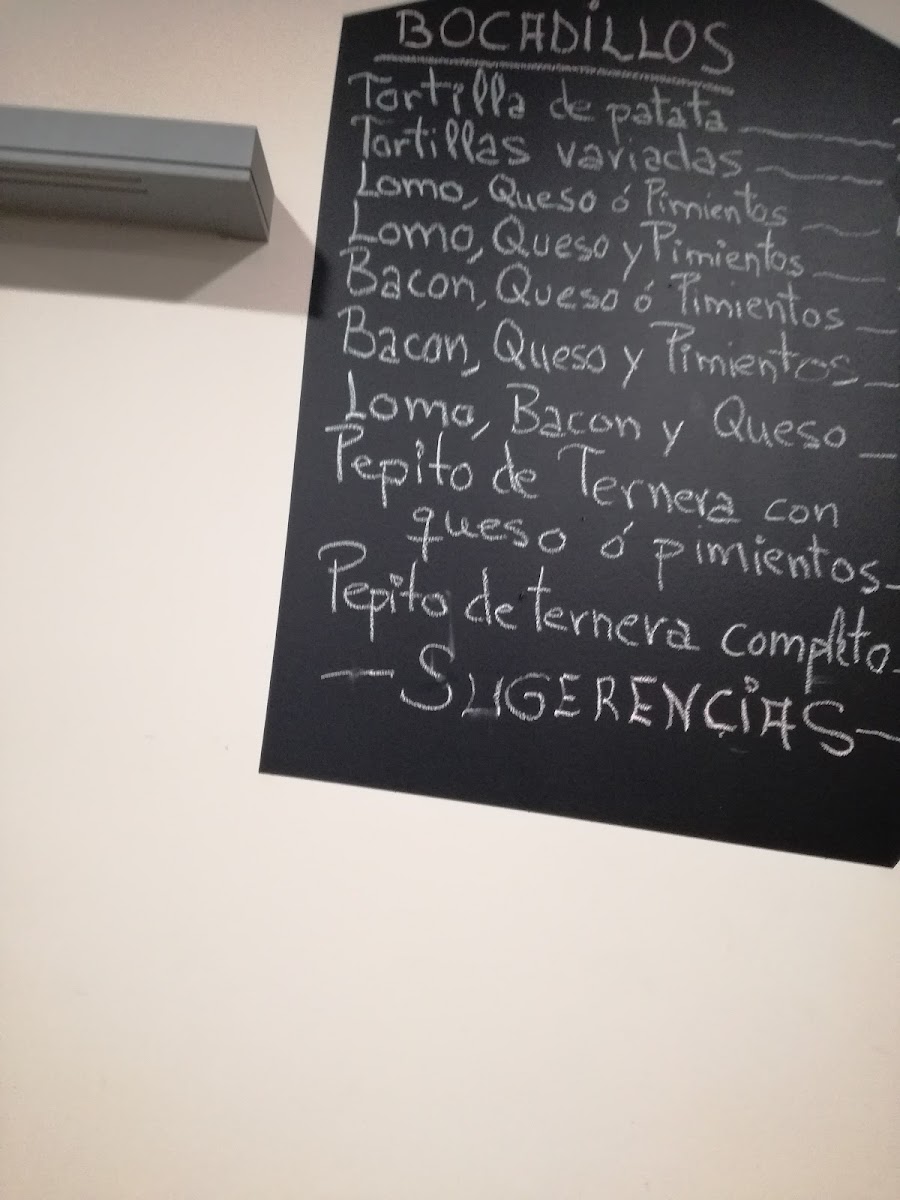 BOCADILLOS
Tortilla de patata
Tortillas variadas
Lomo, Queso ó Pimientos
Lomo, Queso y Pimientos
Bacon, Queso ó Pimientos
Bacon, Queso y Pimientos
Lomo, Bacon y Queso
Pepito de Ternera con
queso ó pimientos
Pepito de ternera completo
— SUGERENCIAS —